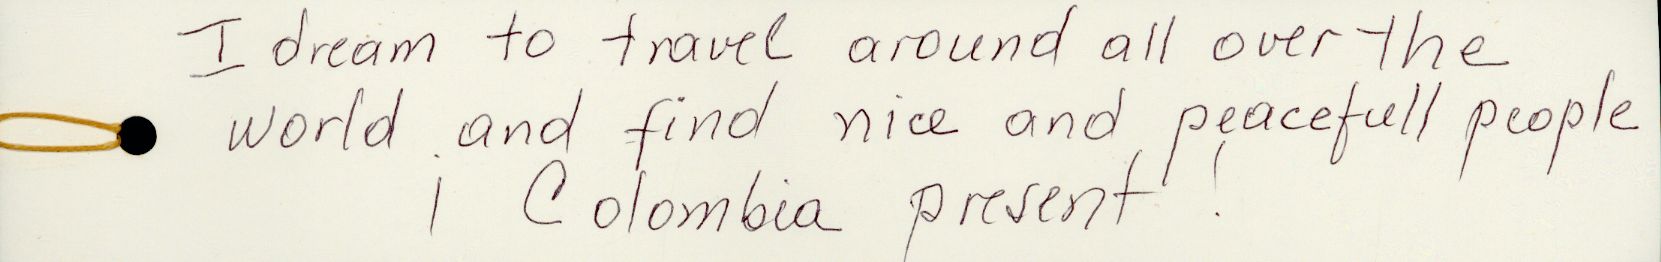 I dream to travel around all over the
world and find nice and peacefull people
¡ Colombia present !